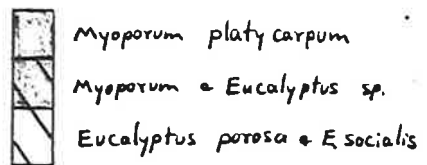 Myoporum platycarpum
Myoporum & Eucalyptus sp.
Eucalyptus porosa & E. socialis